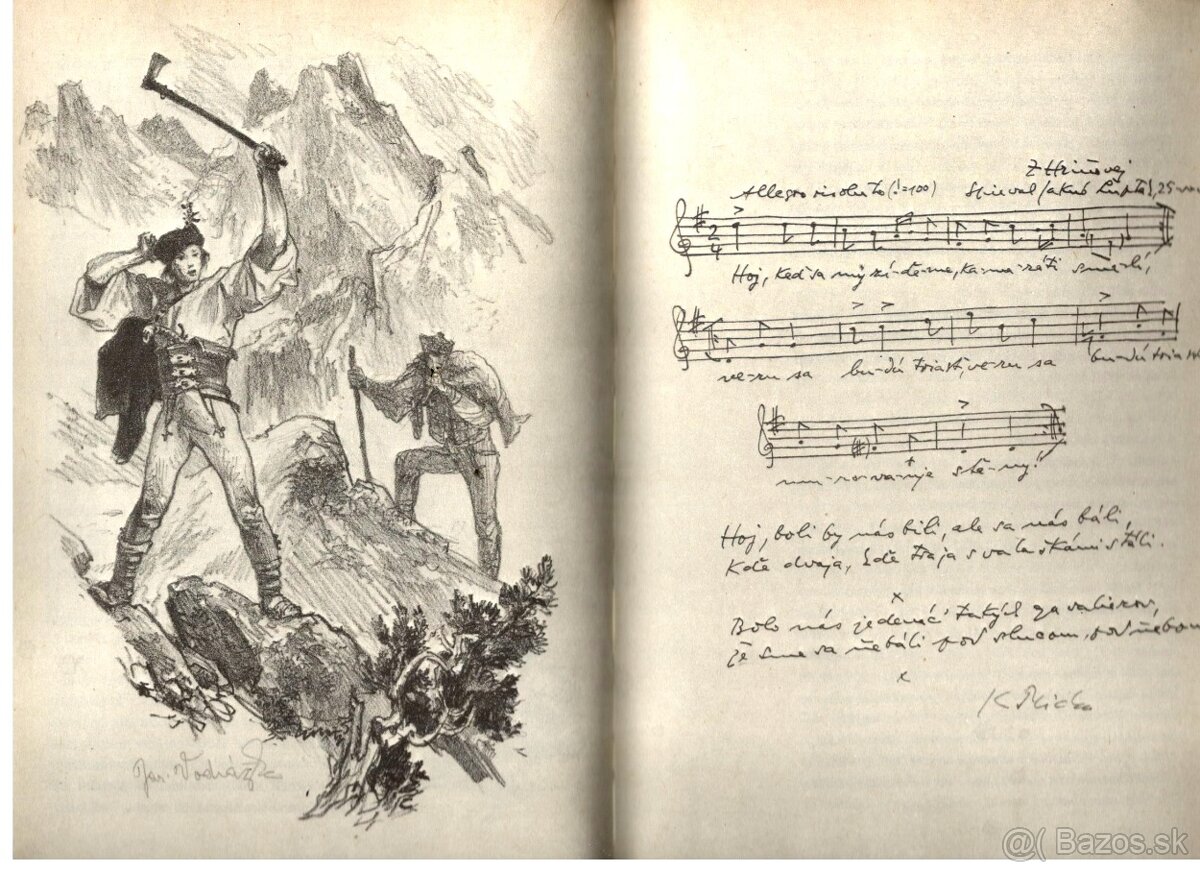 Jar. Vodrážka
Z Hriňovej
Allegro risoluto (♩=100) Spieval Jakub 25
2 4
Hoj, keď sa my zí-ďe-me, ka-ma-ráťi sme-lí,
ve-ru sa bu-dú triasť, ve-ru sa bu-dú triasť
mu-ro-va-ňje sťe-ny!
Hoj, boli by nás bili, ale sa nás báli,
Kďe dvaja, kďe traja s valaškámi stáli.
x
Bolo nás jedenásť takých gavalierov,
že sme sa ňebáli pod slncom, pod ňebom
x
K Plicka
@( Bazos.sk